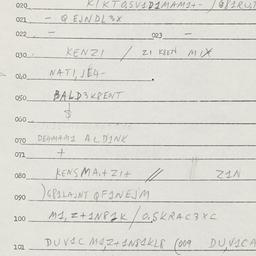 020 KIKTO,SV1D1MAM1+- /G81RUT
021 - QEJNDL3X
022 - 023 -
030 KENZI / ZI KEEN MIX
040 NATI,JE4-
050 BALD3KPENT
$
060
070 DEAMAM1 ALD1NK
071 +
080 KENSMA,+ZI+ // Z1N
090 )G81LAJNT QF1NEJM
100 M1,Z+1N81K / O,SKRAC3XC
101 DUV1C M1,Z+1N81KL8 (009 DU,V1CA